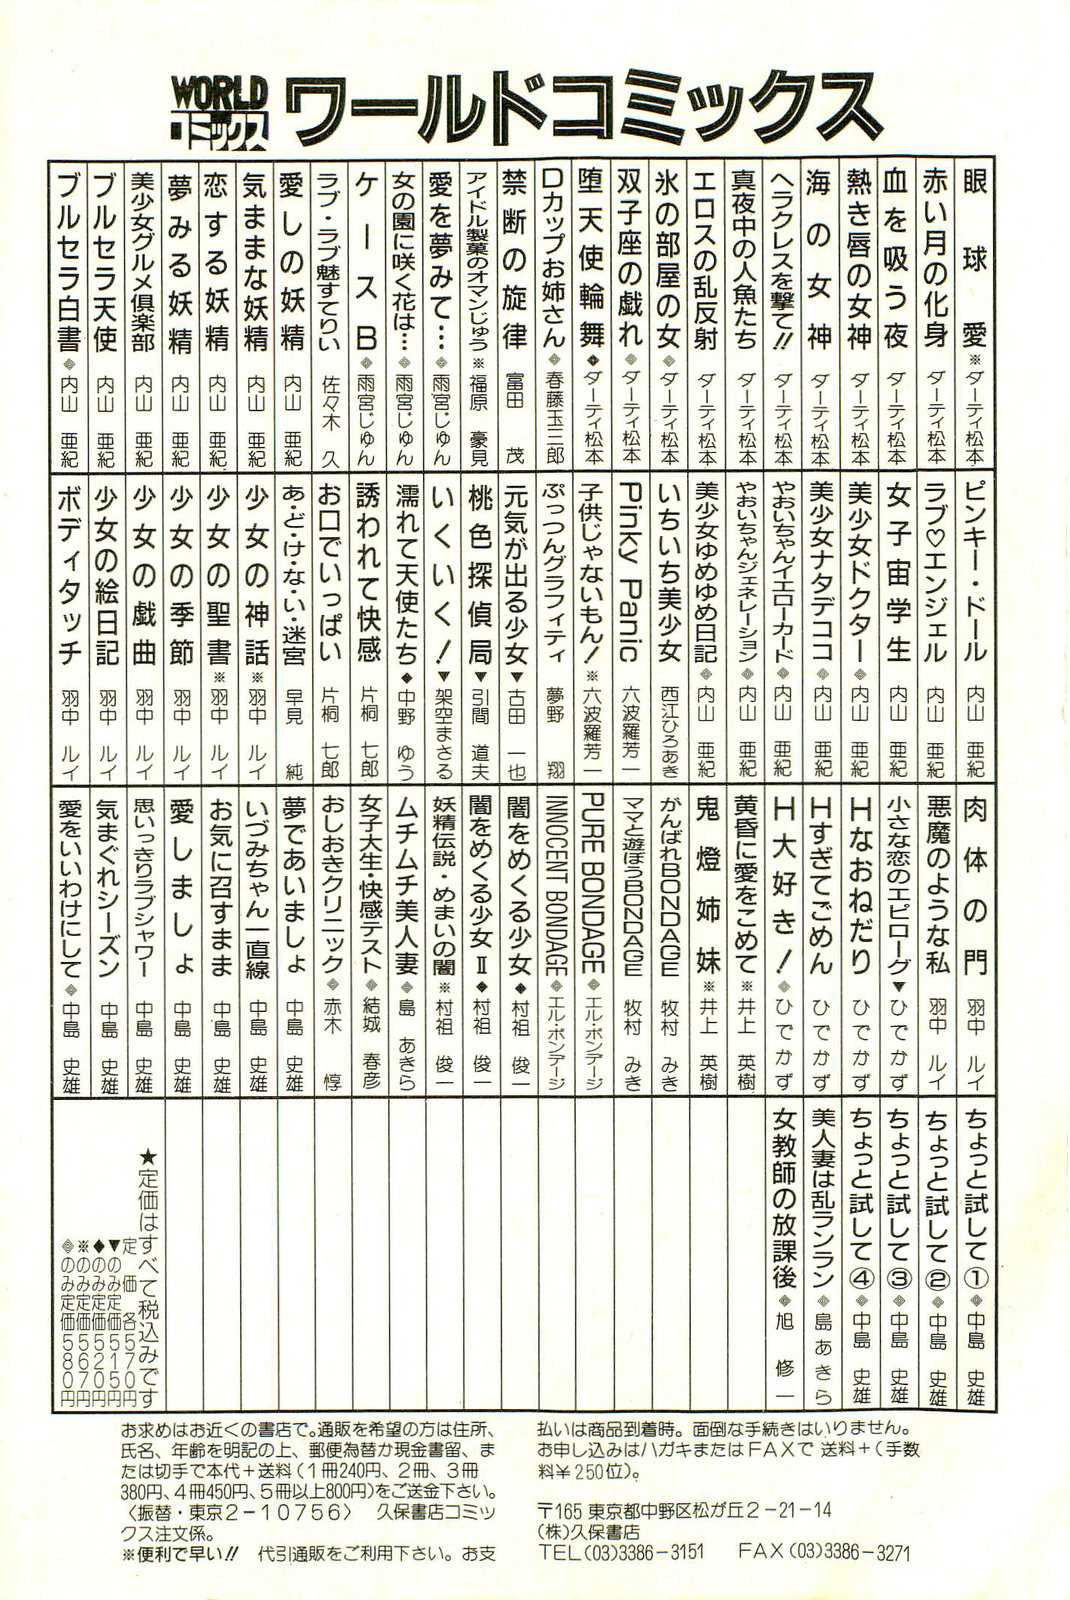 WORLD
コミックス
ワールドコミックス
眼球愛※ダーティ松本
赤い月の化身 ダーティ松本
血を吸う夜 ダーティ松本
熱き唇の女神 ダーティ松本
海の女神 ダーティ松本
ヘラクレスを撃て!! ダーティ松本
真夜中の人魚たち ダーティ松本
エロスの乱反射 ダーティ松本
氷の部屋の女◈ダーティ松本
双子座の戯れ◈ダーティ松本
堕天使輪舞◆ダーティ松本
Dカップお姉さん◈春藤玉三郎
禁断の旋律 富田 茂
アイドル製菓のオマンじゅう※福原 豪見
愛を夢みて…◈雨宮じゅん
女の園に咲く花は…◈雨宮じゅん
ケースB◈雨宮じゅん
ラブ・ラブ魅すてりい 佐々木 久
愛しの妖精 内山 亜紀
気ままな妖精 内山 亜紀
恋する妖精 内山 亜紀
夢みる妖精 内山 亜紀
美少女グルメ倶楽部 内山 亜紀
ブルセラ天使 内山 亜紀
ブルセラ白書◈内山 亜紀
ピンキー・ドール 内山 亜紀
ラブ♡エンジェル 内山 亜紀
女子宙学生 内山 亜紀
美少女ドクター◈内山 亜紀
美少女ナタデココ◈内山 亜紀
やおいちゃんイエローカード◈内山 亜紀
やおいちゃんジェネレーション◈内山 亜紀
美少女ゆめゆめ日記◈内山 亜紀
いちいち美少女 西江ひろあき
Pinky Panic 六波羅芳一
子供じゃないもん!※六波羅芳一
ぷっつんグラフィティ 夢野 翔
元気が出る少女▼古田 一也
桃色探偵局▼引間 道夫
いくいく!▼架空まさる
濡れて天使たち◆中野 ゆう
誘われて快感 片桐 七郎
お口でいっぱい 片桐 七郎
あ・ど・け・な・い・迷宮 早見 純
少女の神話※羽中 ルイ
少女の聖書※羽中 ルイ
少女の季節 羽中 ルイ
少女の戯曲 羽中 ルイ
少女の絵日記 羽中 ルイ
ボディタッチ 羽中 ルイ
肉体の門 羽中 ルイ
悪魔のような私 羽中 ルイ
小さな恋のエピローグ▼ひでかず
Hなおねだり ひでかず
Hすぎてごめん ひでかず
H大好き!◈ひでかず
黄昏に愛をこめて※井上 英樹
鬼燈姉妹※井上 英樹
がんばれBONDAGE 牧村 みき
ママと遊ぼうBONDAGE 牧村 みき
PURE BONDAGE◈エル・ボンデージ
INNOCENT BONDAGE◈エル・ボンデージ
闇をめくる少女◆村祖 俊一
闇をめくる少女Ⅱ◆村祖 俊一
妖精伝説・めまいの闇※村祖 俊一
ムチムチ美人妻◈島 あきら
女子大生・快感テスト◈結城 春彦
おしおきクリニック◈赤木 惇
夢であいましょ 中島 史雄
いづみちゃん一直線 中島 史雄
お気に召すまま 中島 史雄
愛しましょ 中島 史雄
思いっきりラブシャワー 中島 史雄
気まぐれシーズン 中島 史雄
愛をいいわけにして◈中島 史雄
ちょっと試して①◈中島 史雄
ちょっと試して②◈中島 史雄
ちょっと試して③◈中島 史雄
ちょっと試して④◈中島 史雄
美人妻は乱ランラン◈島 あきら
女教師の放課後◈旭 修一
★定価はすべて税込みです
定価 各570円
▼のみ定価515円
◆のみ定価520円
※のみ定価567円
◈のみ定価580円
お求めはお近くの書店で。通販を希望の方は住所、
氏名、年齢を明記の上、郵便為替か現金書留、ま
たは切手で本代+送料(1冊240円、2冊、3冊
380円、4冊450円、5冊以上800円)をご送金下さい。
〈振替・東京2-10756〉 久保書店コミッ
クス注文係。
※便利で早い!! 代引通販をご利用下さい。お支
払いは商品到着時。面倒な手続きはいりません。
お申し込みはハガキまたはFAXで 送料+(手数
料¥250位)。
〒165 東京都中野区松が丘2-21-14
(株)久保書店
TEL(03)3386-3151 FAX(03)3386-3271